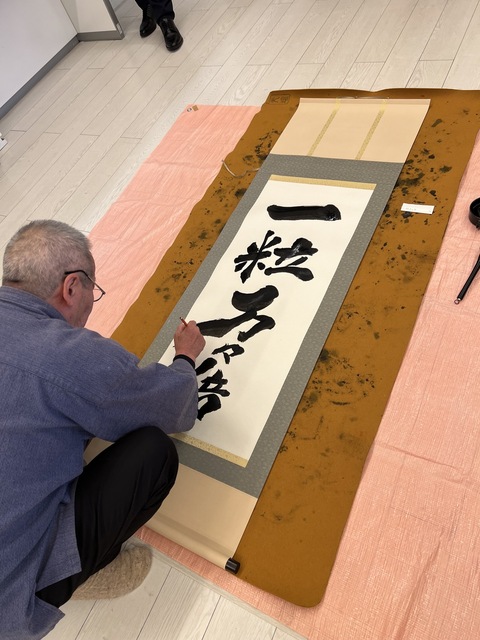 一粒万々倍